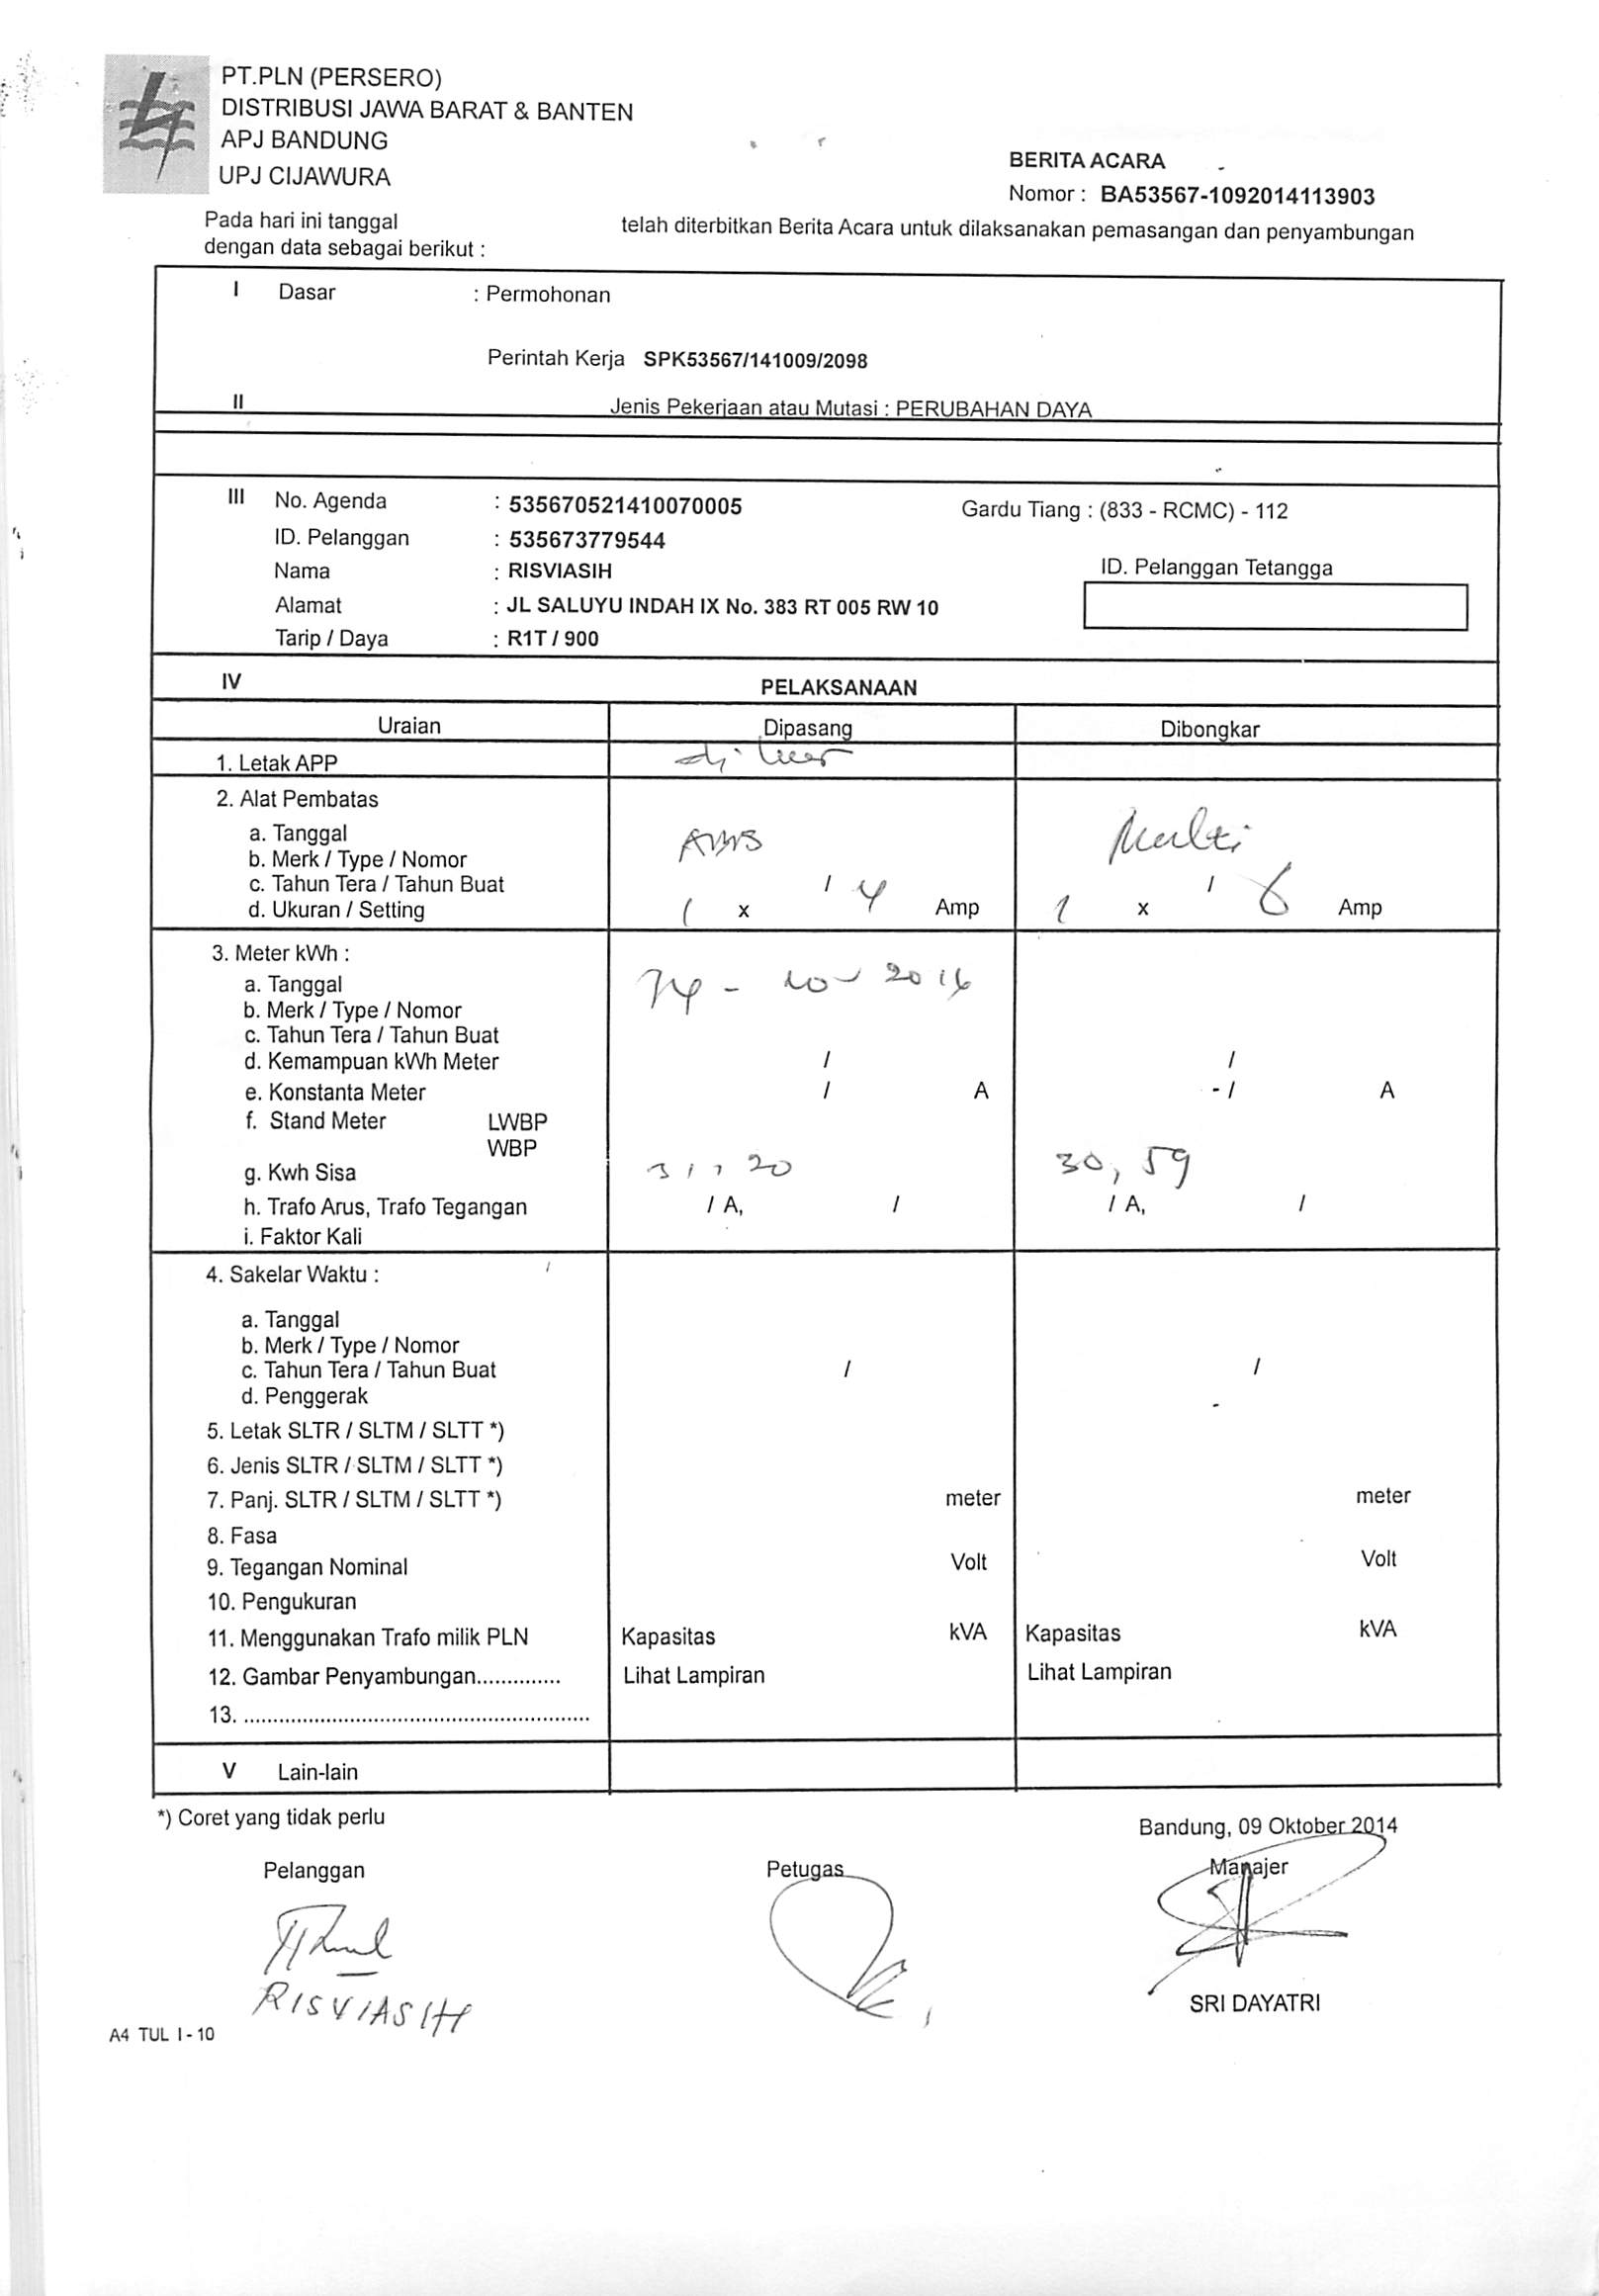 PT.PLN (PERSERO)
DISTRIBUSI JAWA BARAT & BANTEN
APJ BANDUNG
UPJ CIJAWURA
BERITA ACARA
Nomor : BA53567-1092014113903
Pada hari ini tanggal telah diterbitkan Berita Acara untuk dilaksanakan pemasangan dan penyambungan
dengan data sebagai berikut :
I Dasar : Permohonan
Perintah Kerja SPK53567/141009/2098
II Jenis Pekerjaan atau Mutasi : PERUBAHAN DAYA
III No. Agenda : 535670521410070005 Gardu Tiang : (833 - RCMC) - 112
ID. Pelanggan : 535673779544
Nama : RISVIASIH ID. Pelanggan Tetangga
Alamat : JL SALUYU INDAH IX No. 383 RT 005 RW 10
Tarip / Daya : R1T / 900
IV PELAKSANAAN
Uraian Dipasang Dibongkar
1. Letak APP di luar
2. Alat Pembatas
a. Tanggal
b. Merk / Type / Nomor
c. Tahun Tera / Tahun Buat / /
d. Ukuran / Setting 1 x 4 Amp 1 x 6 Amp
3. Meter kWh :
a. Tanggal
b. Merk / Type / Nomor
c. Tahun Tera / Tahun Buat
d. Kemampuan kWh Meter / /
e. Konstanta Meter / A - / A
f. Stand Meter LWBP
WBP
g. Kwh Sisa 31,20 30,59
h. Trafo Arus, Trafo Tegangan / A, / / A, /
i. Faktor Kali
4. Sakelar Waktu :
a. Tanggal
b. Merk / Type / Nomor
c. Tahun Tera / Tahun Buat / /
d. Penggerak
5. Letak SLTR / SLTM / SLTT *)
6. Jenis SLTR / SLTM / SLTT *)
7. Panj. SLTR / SLTM / SLTT *) meter meter
8. Fasa
9. Tegangan Nominal Volt Volt
10. Pengukuran
11. Menggunakan Trafo milik PLN Kapasitas kVA Kapasitas kVA
12. Gambar Penyambungan.............. Lihat Lampiran Lihat Lampiran
13. ..........................................................
V Lain-lain
*) Coret yang tidak perlu
Bandung, 09 Oktober 2014
Pelanggan Petugas Manajer
RISVIASIH
SRI DAYATRI
A4 TUL I - 10